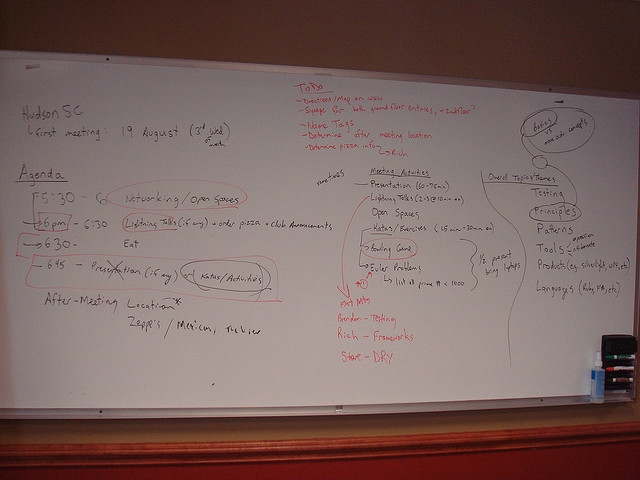 Hudson SC
First meeting: 19 August (3rd Wed)
Agenda
5:30 - 6 Networking/Open Spaces
6pm - 6:30 Lightning Talks (if any) + order pizza + Club Announcements
6:30 - Eat
6:45 - Presentation (if any) Katas/Activities
After-Meeting Location
Zeppe's / Mexican,
ToDo
- Directions/Map on
- Signage for both ground floor entries, + 2nd floor?
- Name Tags
- Determine after meeting location
- Determine pizza info
Rich
Meeting Activities
Presentation (60-75min)
Lightning Talks (2-3 @ 10 min ea)
Open Spaces
Katas/Exercises (15 min - 30min ea)
Bowling Game
Euler Problems
list of prime #s < 1000
1/2 present
bring laptops
Brandon - Testing
Rich - Frameworks
Steve - DRY
basics
vs
concepts
Overall Topics/Themes
Testing
Principles
Patterns
Tools
Products (eg. Silverlight, WPF, etc)
Languages (Ruby, F#, etc)